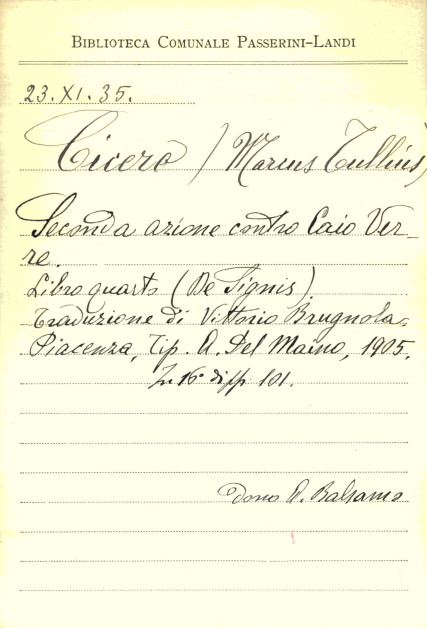 BIBLIOTECA COMUNALE PASSERINI-LANDI
23.XI.35.
Cicero (Marcus Tullius)
Seconda azione contro Caio Ver-
re.
Libro quarto (De Signis)
Traduzione di Vittorio Brugnola.
Piacenza, Tip. A. Del Maino, 1905.
In 16° di pp 101.
Dono A. Balsamo